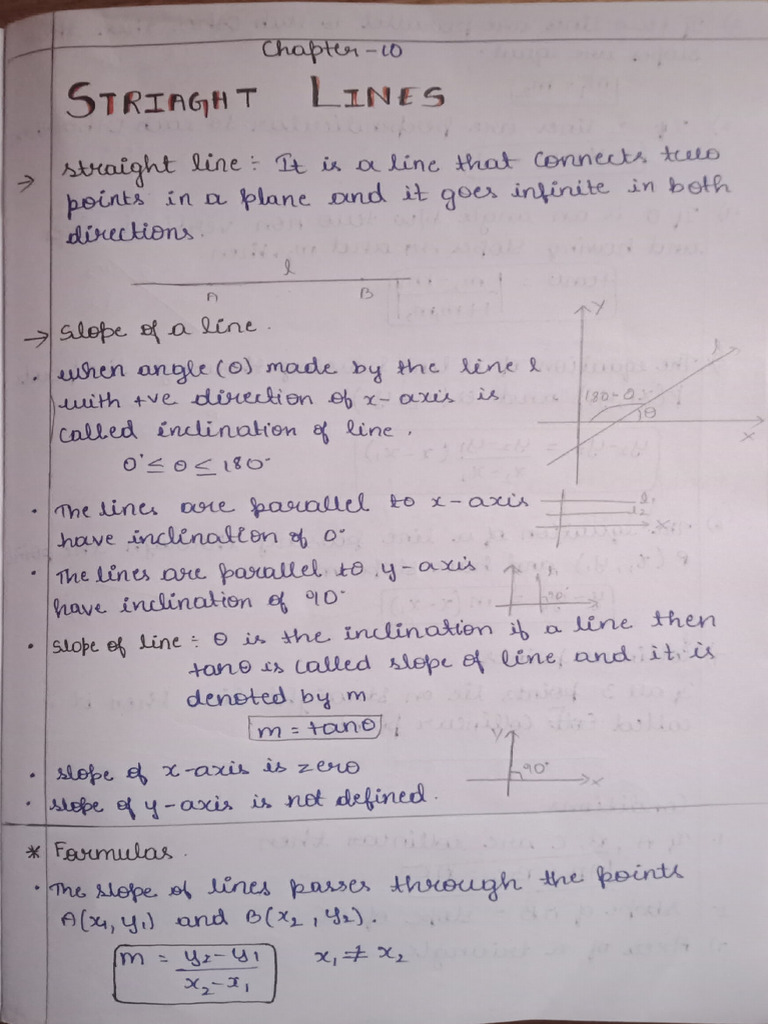 Chapter-10
STRIAGHT LINES
→ straight line :- It is a line that connects two
points in a plane and it goes infinite in both
directions.
l
A B
→ Slope of a line.
Y
l
180-θ
θ
X
• when angle (θ) made by the line l
with +ve direction of x-axis is
called inclination of line.
0° ≤ θ ≤ 180°
• The lines are parallel to x-axis
have inclination of 0°
l1
l2
X
• The lines are parallel to y-axis
have inclination of 90°
90°
• slope of line :- θ is the inclination if a line then
tanθ is called slope of line, and it is
denoted by m
m = tanθ
• slope of x-axis is zero
• slope of y-axis is not defined.
Y
90°
X
* Formulas.
• The slope of lines passes through the points
A(x1, y1) and B(x2, y2).
m = y2-y1 / x2-x1 x1 ≠ x2